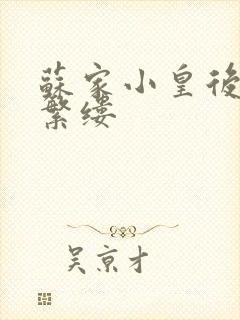 蘇家小皇後
繁縷
吴京才